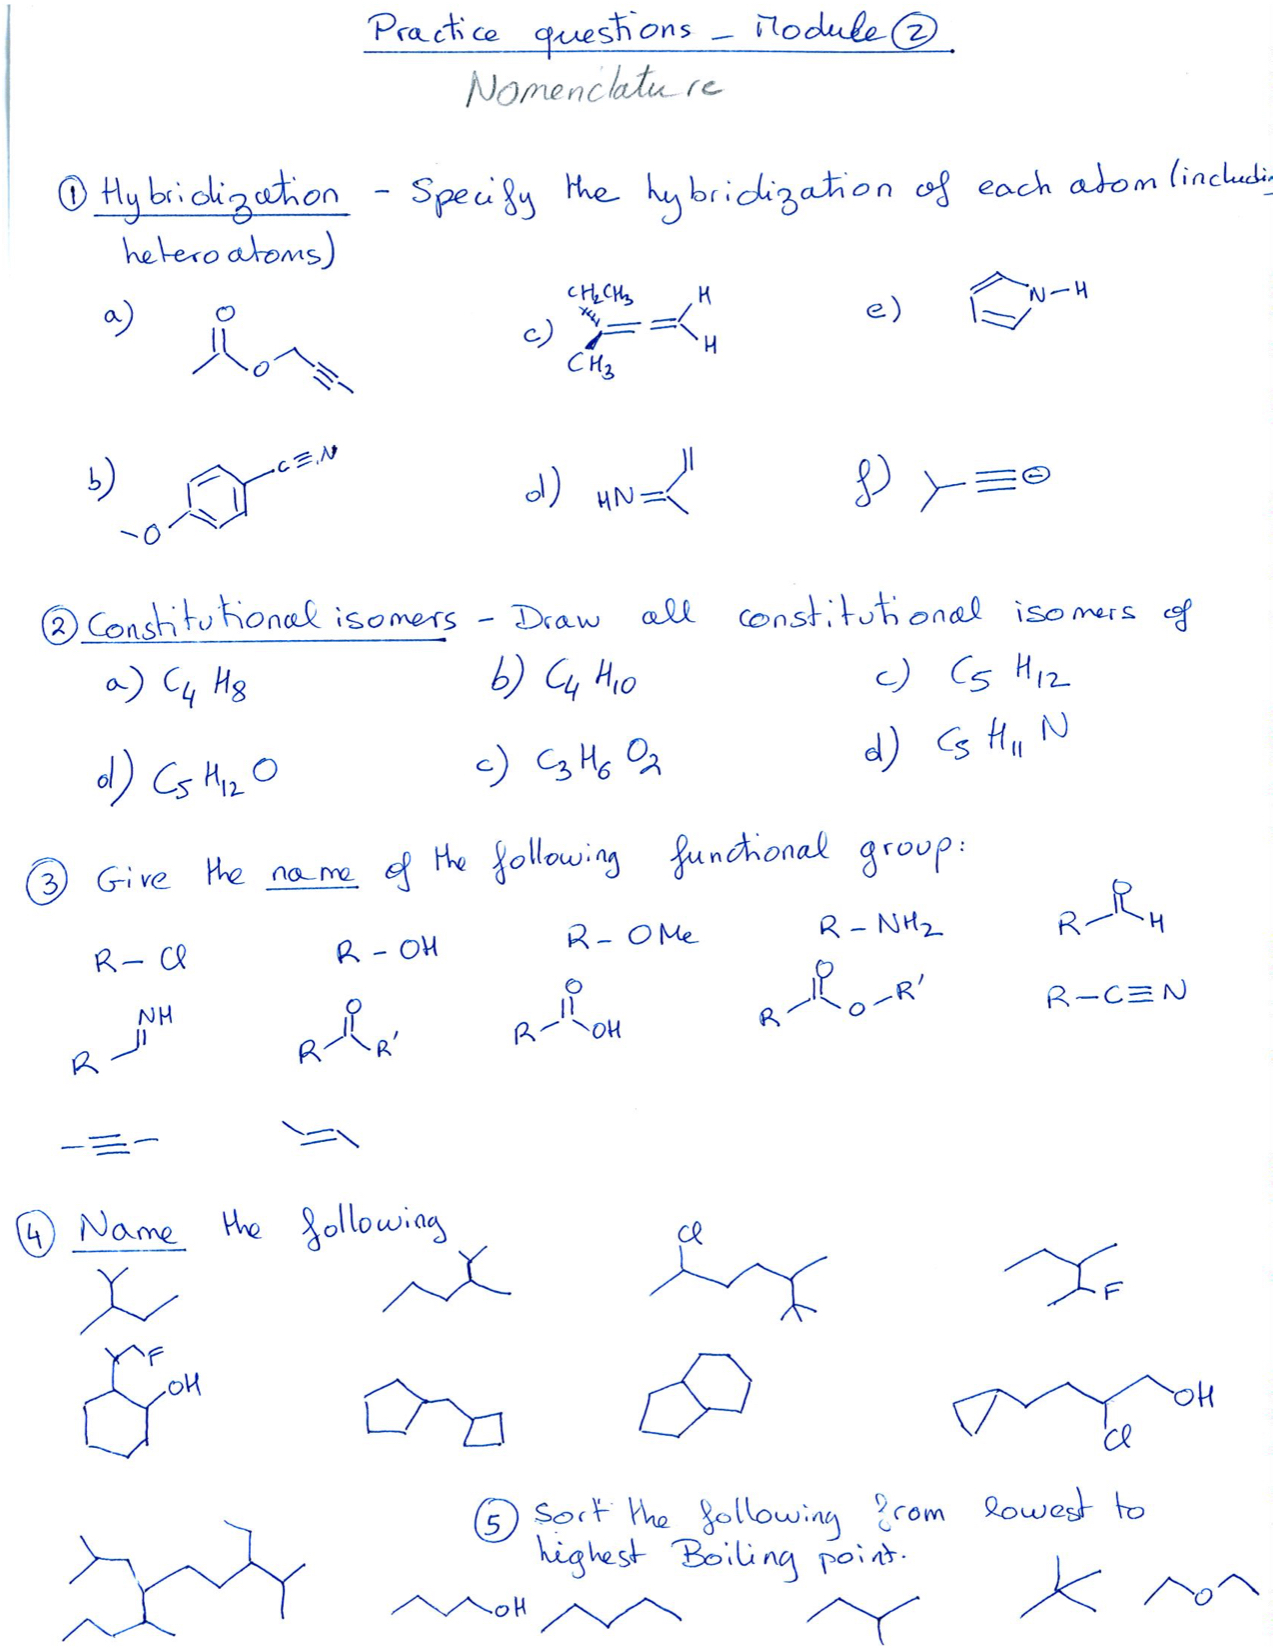 Practice questions - Module ②
Nomenclature
① Hybridization - Specify the hybridization of each atom (includi
heteroatoms)
a) O O
c) CH₂CH₃ CH₃ H H
e) N-H
b) C≡N O
d) HN=
f) ⊖
② Constitutional isomers - Draw all constitutional isomers of
a) C₄ H₈ b) C₄ H₁₀ c) C₅ H₁₂
d) C₅ H₁₂ O c) C₃ H₆ O₂ d) C₅ H₁₁ N
③ Give the name of the following functional group:
R-Cl R-OH R-OMe R-NH₂ R O H
R NH R O R' R O OH R O O-R' R-C≡N
④ Name the following
Cl F
F OH OH Cl
⑤ Sort the following from lowest to
highest Boiling point.
OH O